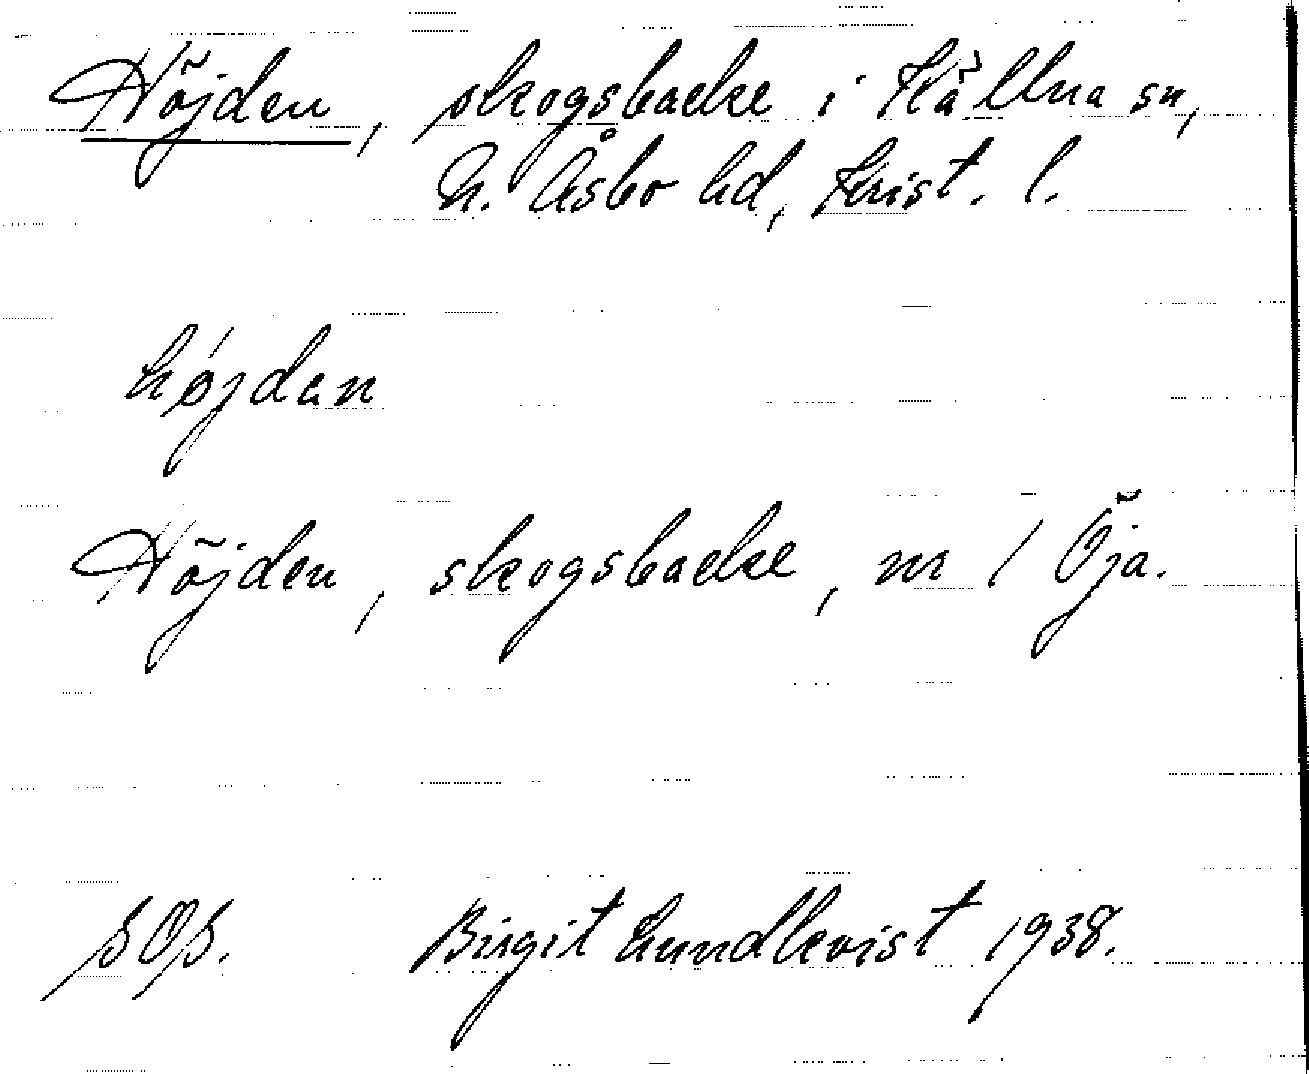 Höjden, skogsbacke i Källna sn,
N. Åsbo hd, Krist. l.
højdan
Höjden, skogsbacke, nr 1 Öja.
SOS. Birgit Lundkvist 1938.